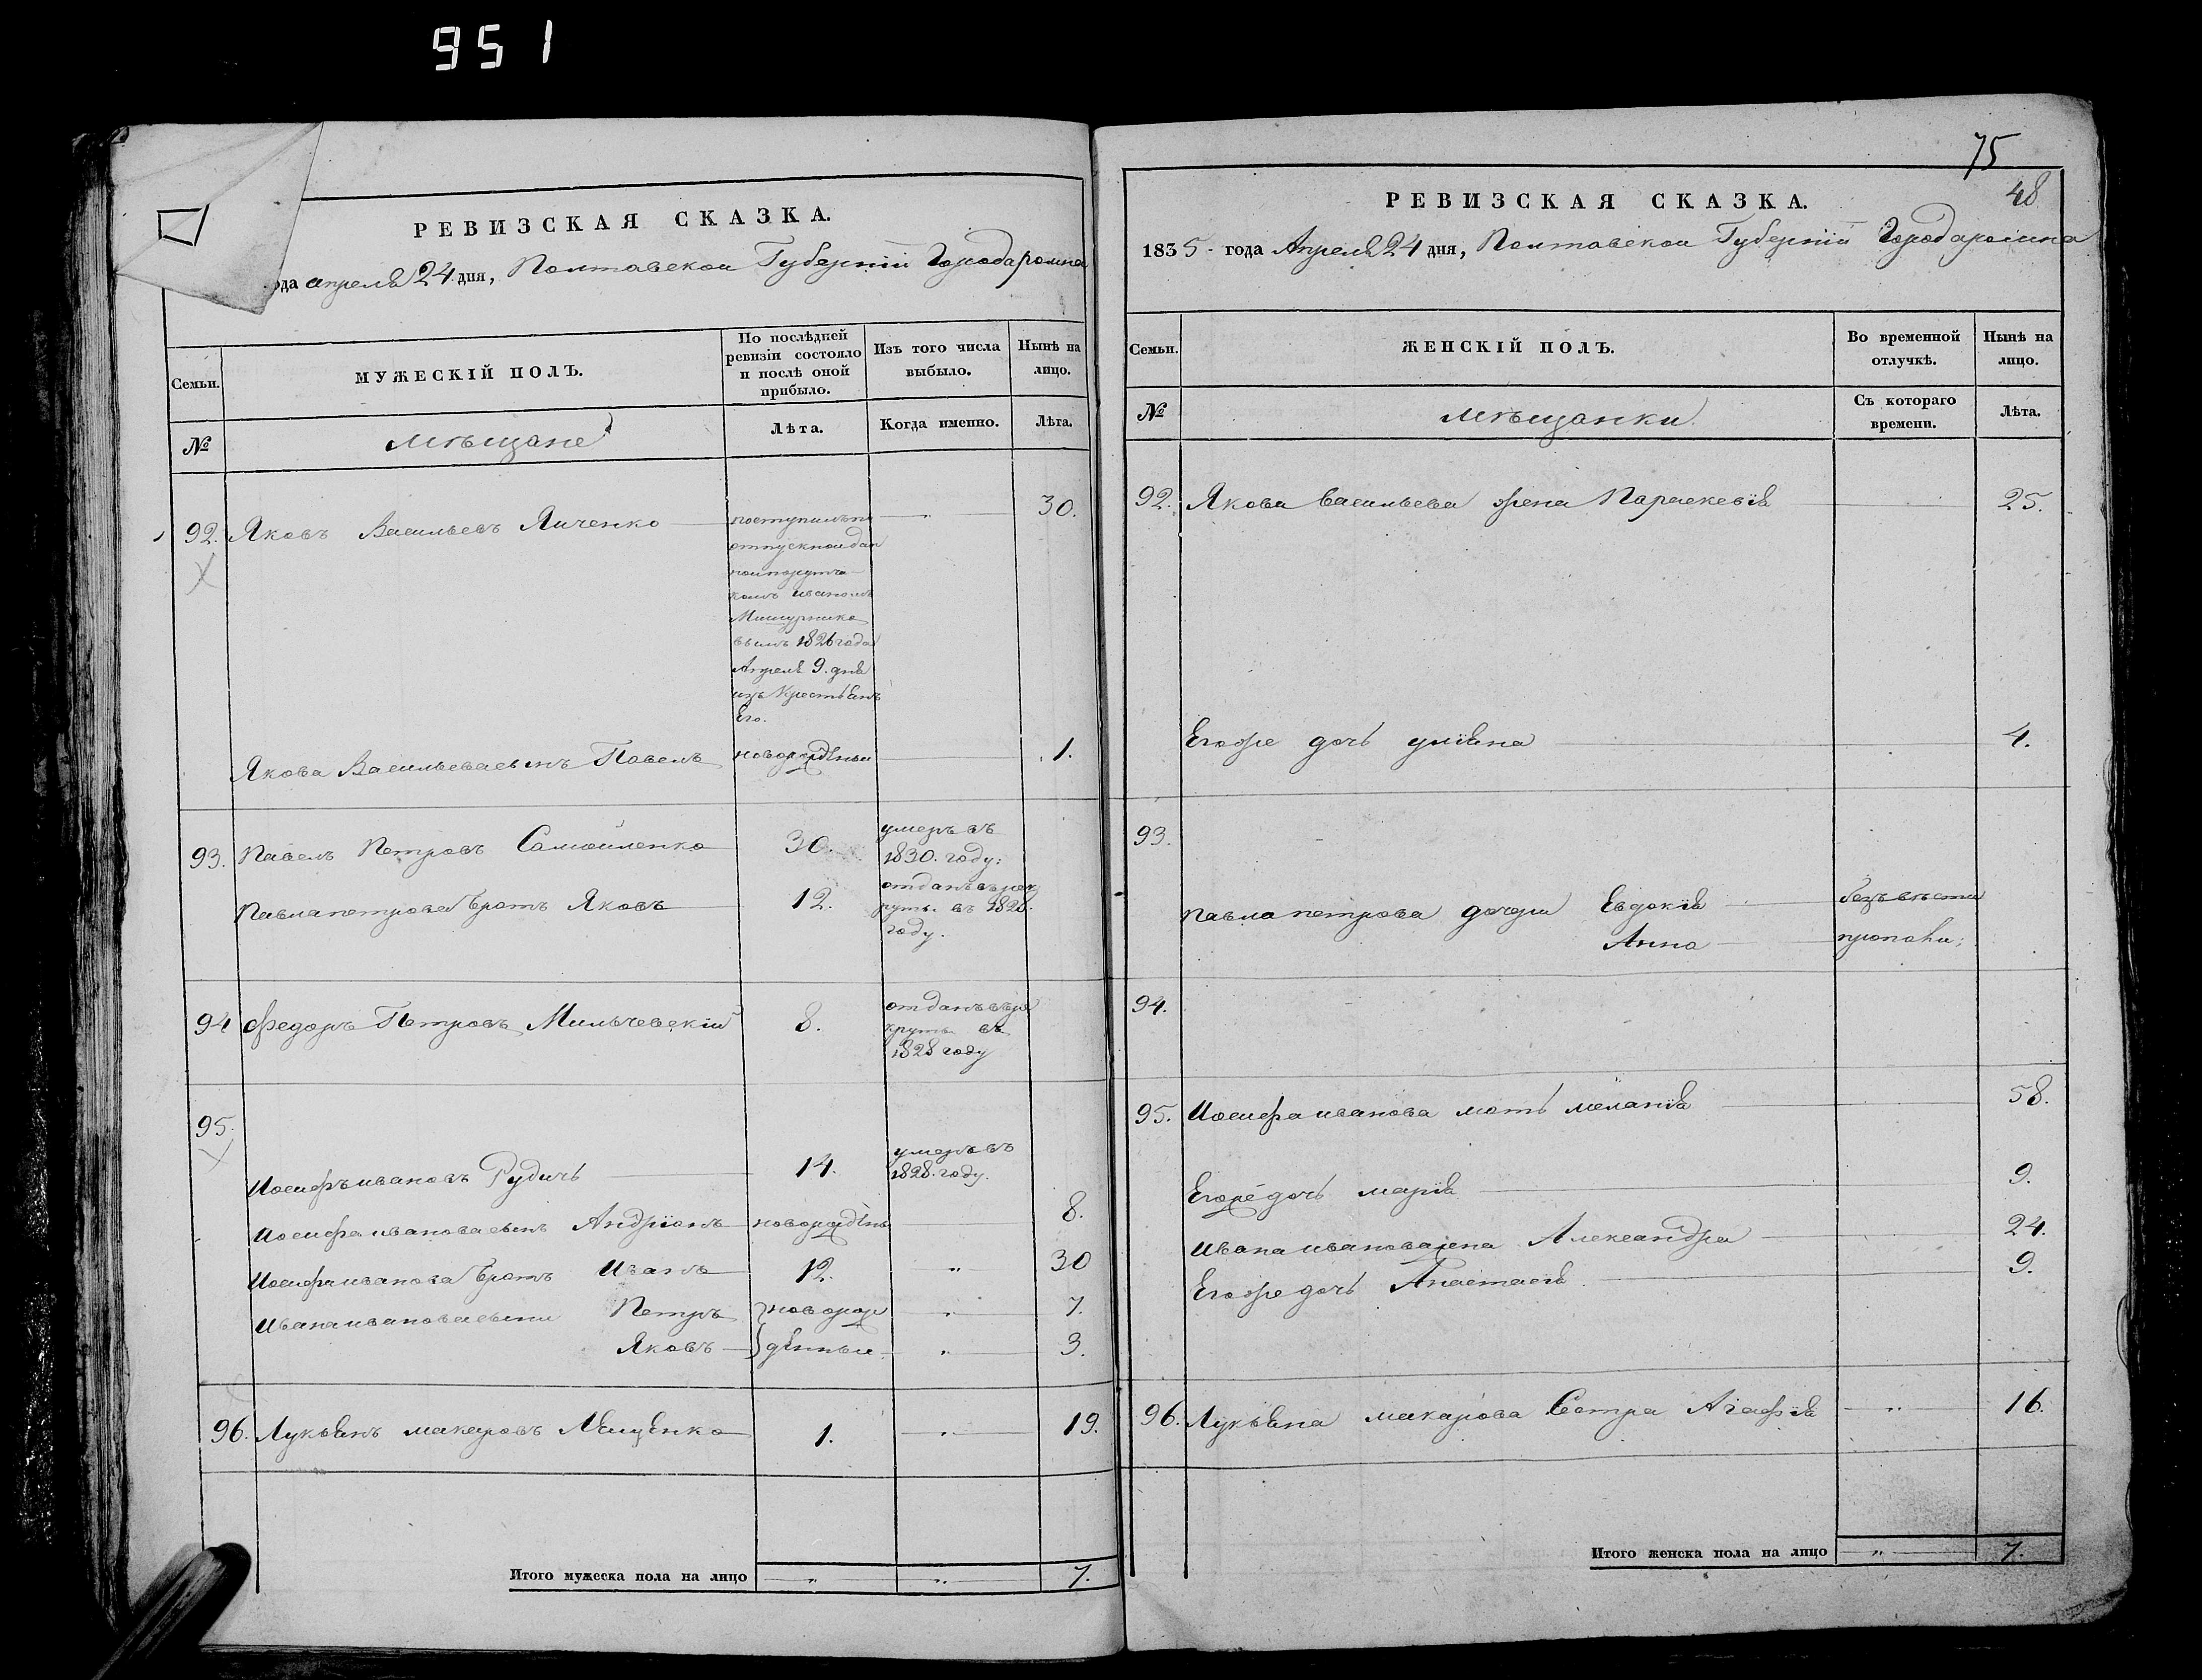 951
РЕВИЗСКАЯ СКАЗКА.
ода апреля 24 дня, Полтавской Губернии Города ромна
Семьи.
МУЖЕСКІЙ ПОЛЪ.
По послѣдней ревизіи состояло и послѣ оной прибыло.
Изъ того числа выбыло.
Нынѣ на лицо.
№
мѣщане
Лѣта.
Когда именно.
Лѣта.
92. Яковъ Васильевъ Яиченко
поступилъ по
отпускной дан
ной поручи
комъ Иваномъ
вымъ 1826 года
Апреля 9. дня
изъ Крестьянъ
Его.
" 30.
Якова Васильева сынъ Павелъ новорожденъ 1.
93. Павелъ Петровъ Самойленко 30. умеръ въ
1830. году.
Павла петрова братъ Яковъ 12. отданъ въ рек
руты въ 1828.
году.
94 Федоръ Петровъ Мильчевскій 8. отданъ въ ре
круты въ
1828 году
95.
Иосифъ ивановъ Рудичь 14. умеръ въ
1828. году.
Иосифа иванова сынъ Андріянъ новорожденъ 8.
Иосифа иванова братъ Иванъ 12. " 30
Ивана иванова сыни Петръ новорож " 7.
Яковъ денные " 3.
96. Лукьянъ макаровъ Лещенко 1. " 19.
Итого мужеска пола на лицо " " 7.
75
48
РЕВИЗСКАЯ СКАЗКА.
1835 года Апреля 24 дня, Полтавской Губерніи Города ромна
Семьи.
ЖЕНСКІЙ ПОЛЪ.
Во временной отлучкѣ.
Нынѣ на лицо.
№
мѣщанки
Съ котораго времени.
Лѣта.
92. Якова Васильева жена Параскевія 25.
Егоже дочь уліяна 4.
93.
Павла петрова дочери Евдокія безъ вѣсти
Анна пропали;
94.
95. Иосифа иванова мать меланія 58.
Егоже дочь марія 9.
Ивана иванова жена Александра 24.
Егоже дочь Анастасія 9.
96. Лукьяна макарова Сестра Агафія " 16.
Итого женска пола на лицо " 7.